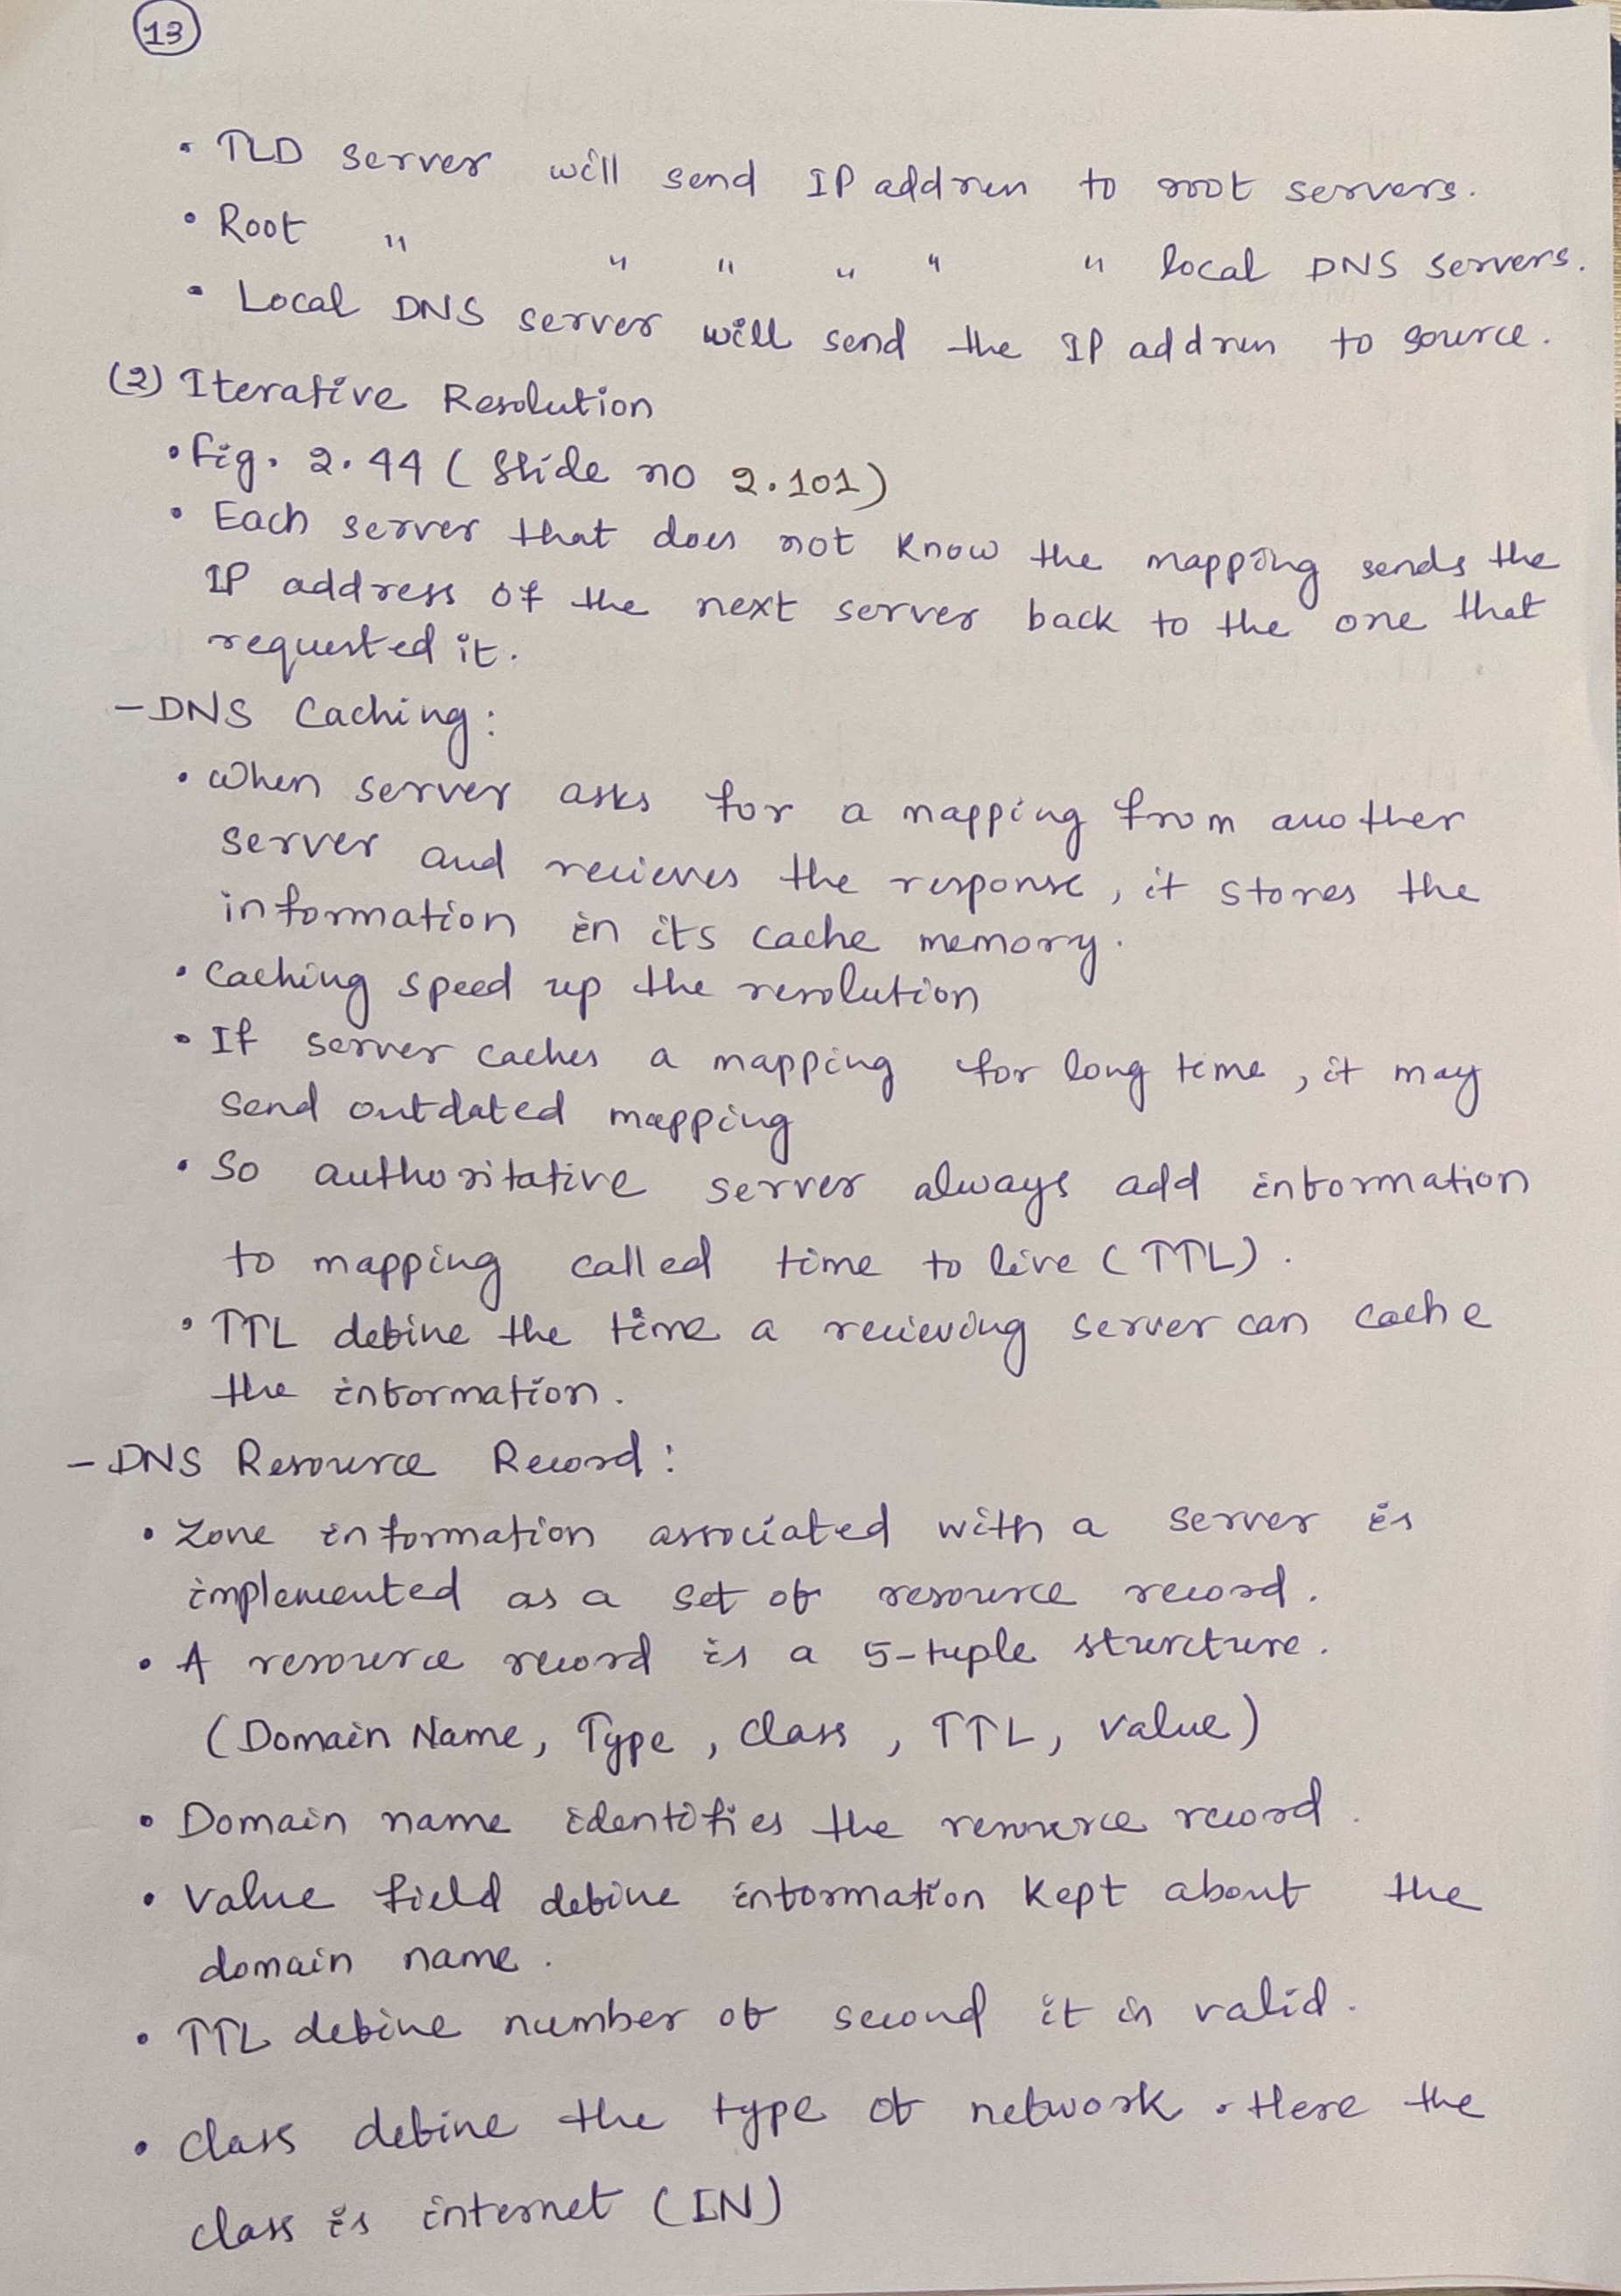 13
• TLD server will send IP address to root servers.
• Root " " " " " " local DNS servers.
• Local DNS server will send the IP address to source.
(2) Iterative Resolution
• Fig. 2.44 (Slide no 2.101)
• Each server that does not know the mapping sends the
IP address of the next server back to the one that
requested it.
- DNS Caching:
• When server asks for a mapping from another
server and recieves the response, it stores the
information in its cache memory.
• Caching speed up the resolution
• If server caches a mapping for long time, it may
send outdated mapping
• So authoritative server always add information
to mapping called time to live (TTL).
• TTL define the time a recieving server can cache
the information.
- DNS Resource Record:
• Zone information associated with a server is
implemented as a set of resource record.
• A resource record is a 5-tuple sturcture.
(Domain Name, Type, Class, TTL, Value)
• Domain name identifies the resource record.
• Value field define information kept about the
domain name.
• TTL define number of second it is valid.
• Class define the type of network. Here the
class is internet (IN)